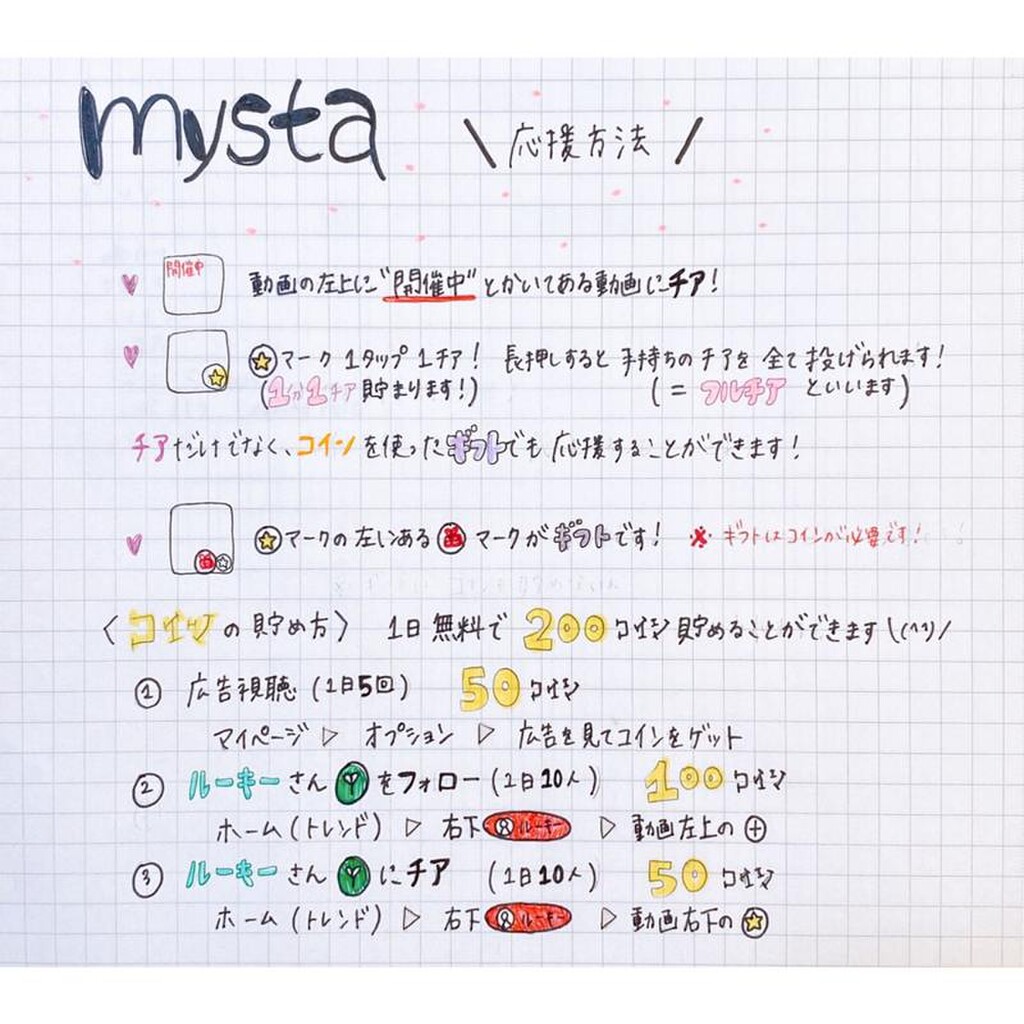 mysta \ 応援方法 /
開催中
動画の左上に"開催中"とかいてある動画にチア!
マーク 1タップ1チア! 長押しすると手持ちのチアを全て投げられます!
(1分1チア貯まります!) (=フルチアといいます)
チアだけでなく、コインを使ったギフトでも応援することができます!
マークの左にある マークがギフトです! ※ギフトはコインが必要です!
〈コインの貯め方〉 1日無料で200コイン貯めることができます\(^^)/
① 広告視聴(1日5回) 50コイン
マイページ ▷ オプション ▷ 広告を見てコインをゲット
② ルーキーさん をフォロー(1日10人) 100コイン
ホーム(トレンド) ▷ 右下 ルーキー ▷ 動画左上の⊕
③ ルーキーさん にチア (1日10人) 50コイン
ホーム(トレンド) ▷ 右下 ルーキー ▷ 動画右下の